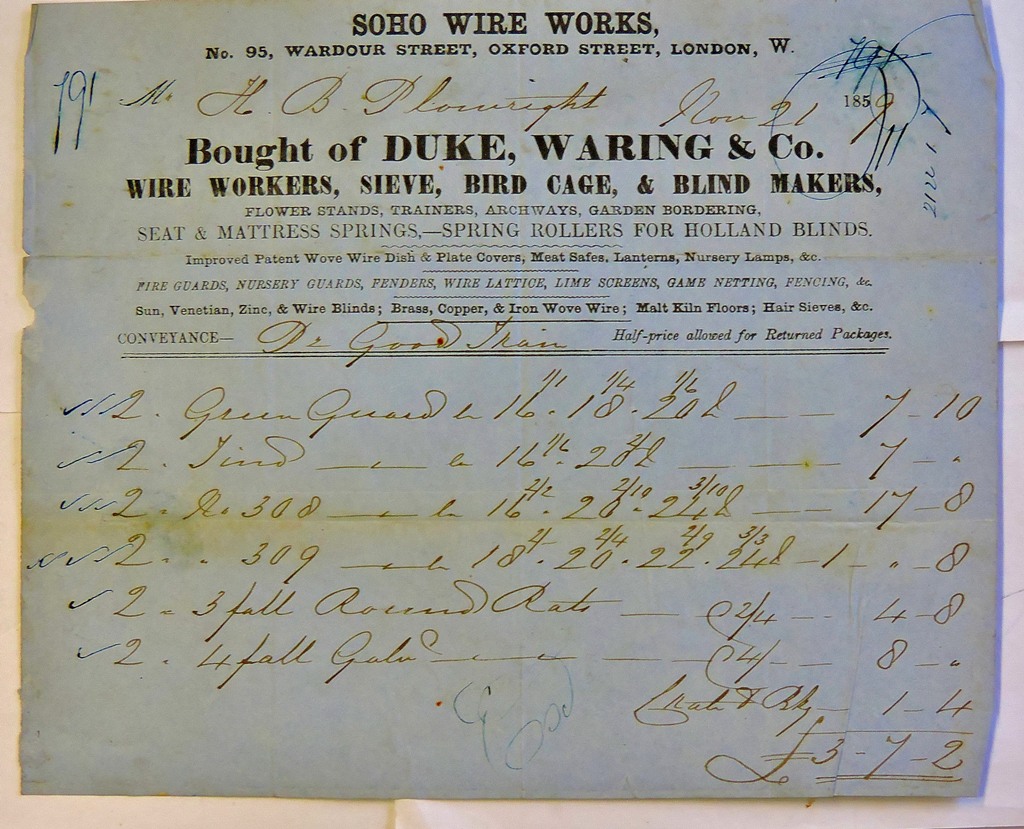 SOHO WIRE WORKS,
No. 95, WARDOUR STREET, OXFORD STREET, LONDON, W.
191 Mr H. B. Plowright Nov 21 1859
Bought of DUKE, WARING & Co.
WIRE WORKERS, SIEVE, BIRD CAGE, & BLIND MAKERS,
FLOWER STANDS, TRAINERS, ARCHWAYS, GARDEN BORDERING,
SEAT & MATTRESS SPRINGS,—SPRING ROLLERS FOR HOLLAND BLINDS.
Improved Patent Wove Wire Dish & Plate Covers, Meat Safes, Lanterns, Nursery Lamps, &c.
FIRE GUARDS, NURSERY GUARDS, FENDERS, WIRE LATTICE, LIME SCREENS, GAME NETTING, FENCING, &c.
Sun, Venetian, Zinc, & Wire Blinds; Brass, Copper, & Iron Wove Wire; Malt Kiln Floors; Hair Sieves, &c.
CONVEYANCE— Pr Good Train Half-price allowed for Returned Packages.
1/1 1/4 1/6
2 - Green Guard 16 - 18 - 20 — — 7 - 10
2 - Tind — 16 - 20 — 7 - "
2/2 2/10 3/10
2 - No 308 — 16 - 20 - 24 — 17 - 8
2/- 2/4 2/9 3/3
2 " 309 — 18 - 20 - 22 - 24 - 1 - " - 8
2 - 3 fall Round Rats — 2/4 — 4 - 8
2 - 4 fall Galvd — — 4/- — 8 - "
Crate & Pkg — 1 - 4
£3 - 7 - 2